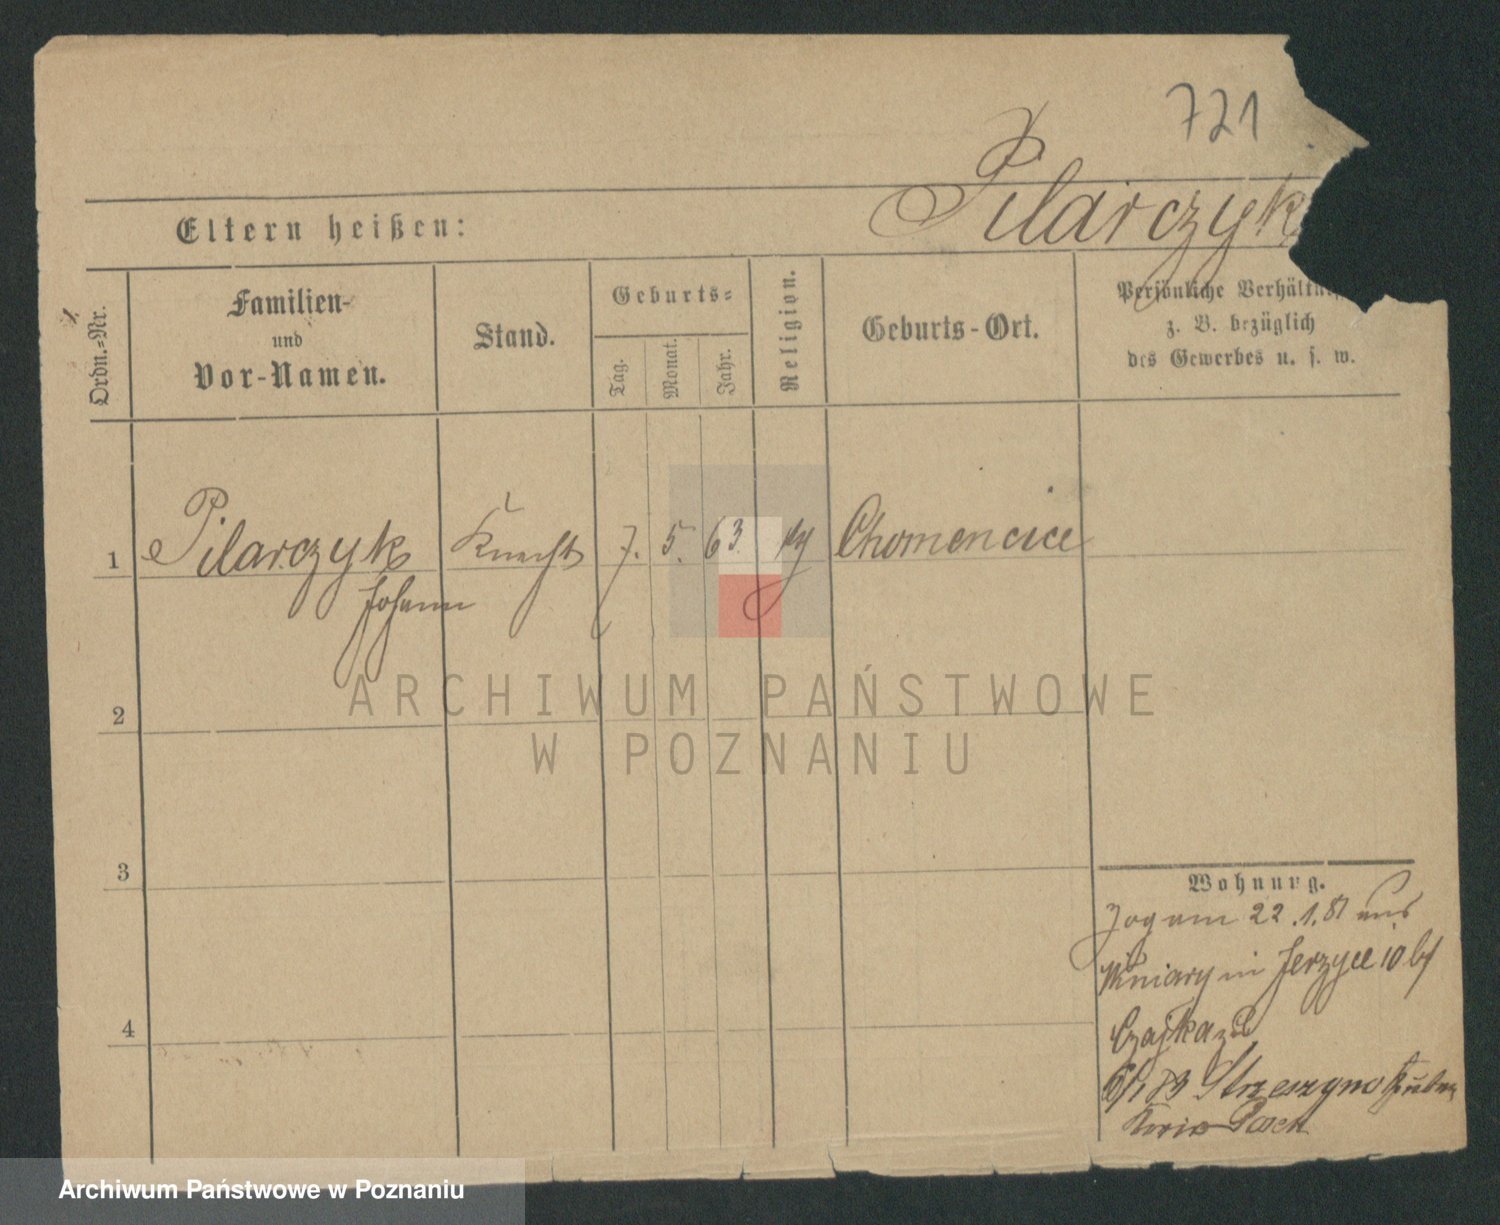 721
Pilarczyk
Eltern heißen:
Ordn.-Nr.
Familien-
und
Vor-Namen.
Stand.
Geburts-
Tag.
Monat.
Jahr.
Religion.
Geburts-Ort.
Persönliche Verhältnis
z. B. bezüglich
des Gewerbes u. s. w.
1 Pilarczyk Knecht 7. 5. 63. Chomencice
Johann
2
3
4
Wohnung.
Zog am 22.1.81 aus
Winiary in Jerzyce 10 bf
Czajka
Strzeszyno
ARCHIWUM PAŃSTWOWE
W POZNANIU
Archiwum Państwowe w Poznaniu